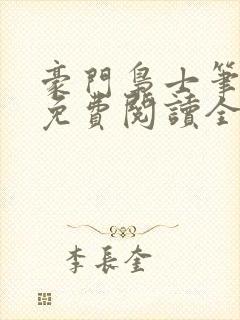 豪門梟士筆
免費閱讀全
李長奎